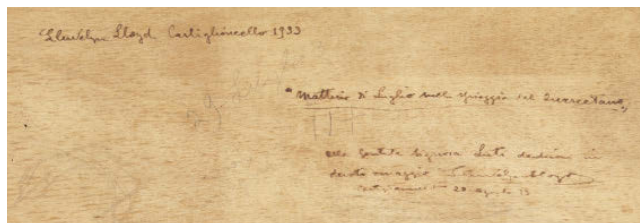 Llewelyn Lloyd Castiglioncello 1933
"Mattino di Luglio sulla spiaggia del Quercetano"
Alla Gentile Signora dedica in
devoto omaggio Llewelyn Lloyd
Castiglioncello 28 agosto 33